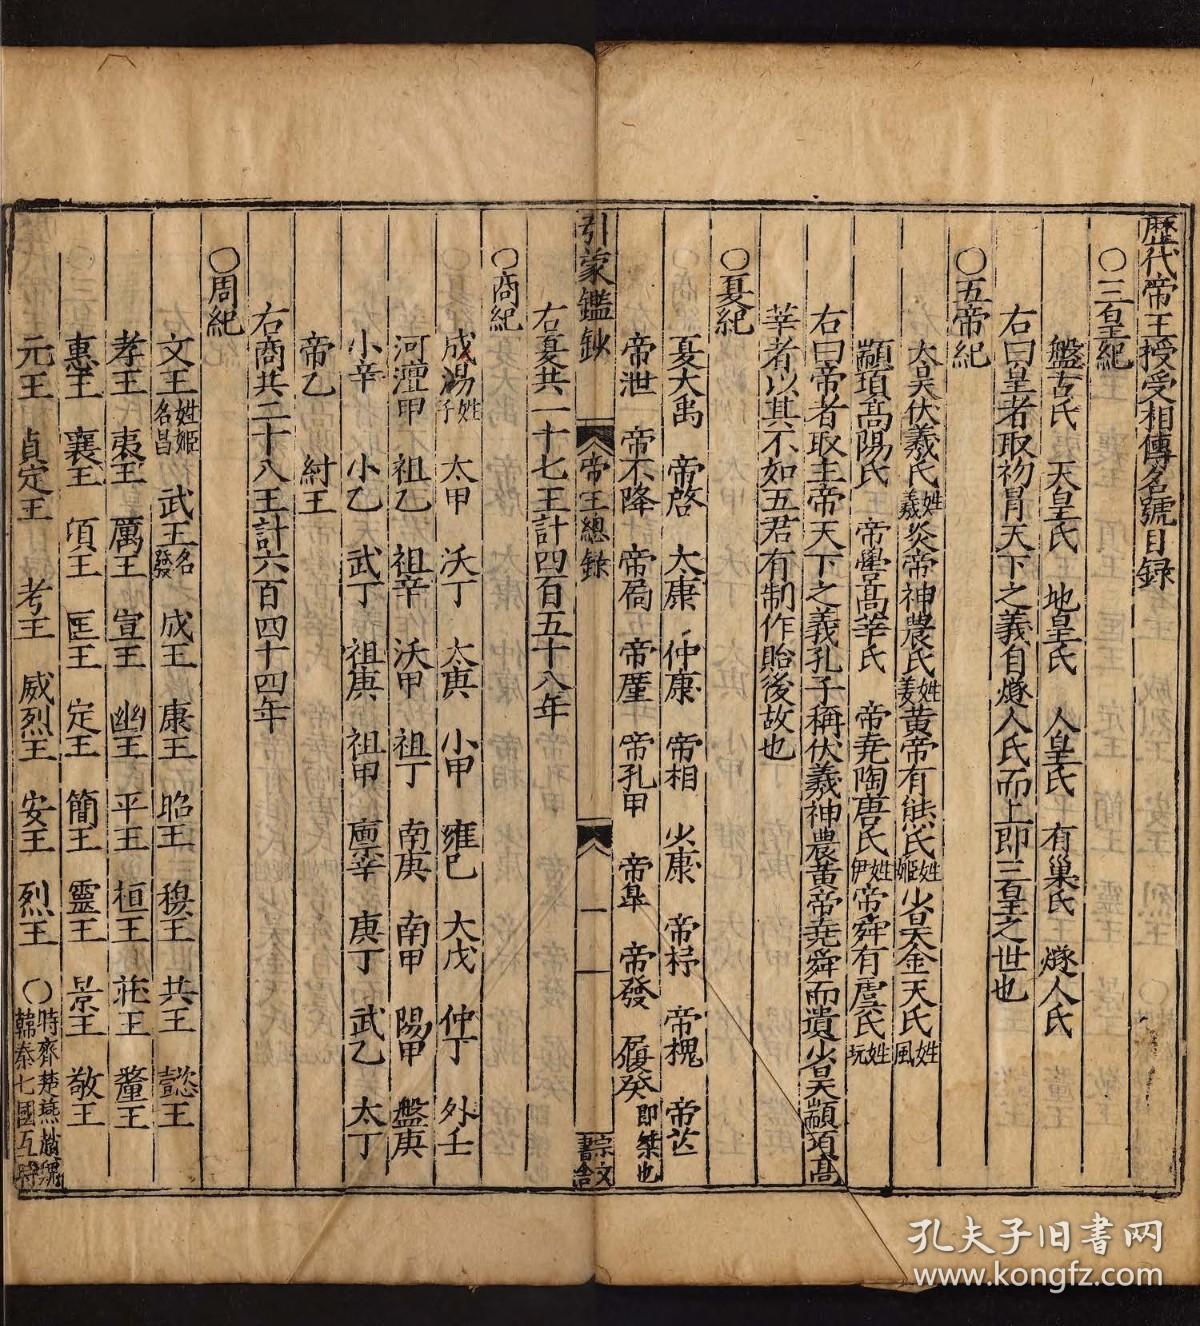 歷代帝王授受相傳名號目錄
○三皇紀
盤古氏 天皇氏 地皇氏 人皇氏 有巢氏 燧人氏
右曰皇者取初冐天下之義自燧人氏而上即三皇之世也
○五帝紀
太昊伏羲氏 炎帝神農氏姓姜黃帝有熊氏姓姬少昊金天氏姓風
顓頊高陽氏 帝嚳高莘氏 帝堯陶唐氏姓伊帝舜有虞氏
右曰帝者取主帝天下之義孔子稱伏羲神農黃帝堯舜而遺少昊顓頊高
莘者以其不如五君有制作貽後故也
○夏紀
夏大禹 帝啓 太康 仲康 帝相 少康 帝杼 帝槐 帝芒
帝泄 帝不降 帝扃 帝廑 帝孔甲 帝皐 帝發 履癸即桀也
引蒙鑑鈔 帝王總錄 一 宗文書舍
右夏共一十七王計四百五十八年
○商紀
成湯姓子 太甲 沃丁 太庚 小甲 雍巳 大戊 仲丁 外壬
河亶甲 祖乙 祖辛 沃甲 祖丁 南庚 南甲 陽甲 盤庚
小辛 小乙 武丁 祖庚 祖甲 廩辛 庚丁 武乙 太丁
帝乙 紂王
右商共二十八王計六百四十四年
○周紀
文王姓姬名昌 武王名發 成王 康王 昭王 穆王 共王 懿王
孝王 夷王 厲王 宣王 幽王 平王 桓王 莊王 釐王
惠王 襄王 項王 匡王 定王 簡王 靈王 景王 敬王
元王 貞定王 考王 威烈王 安王 烈王 ○時齊楚燕趙魏韓秦七國互時
孔夫子旧书网
www.kongfz.com